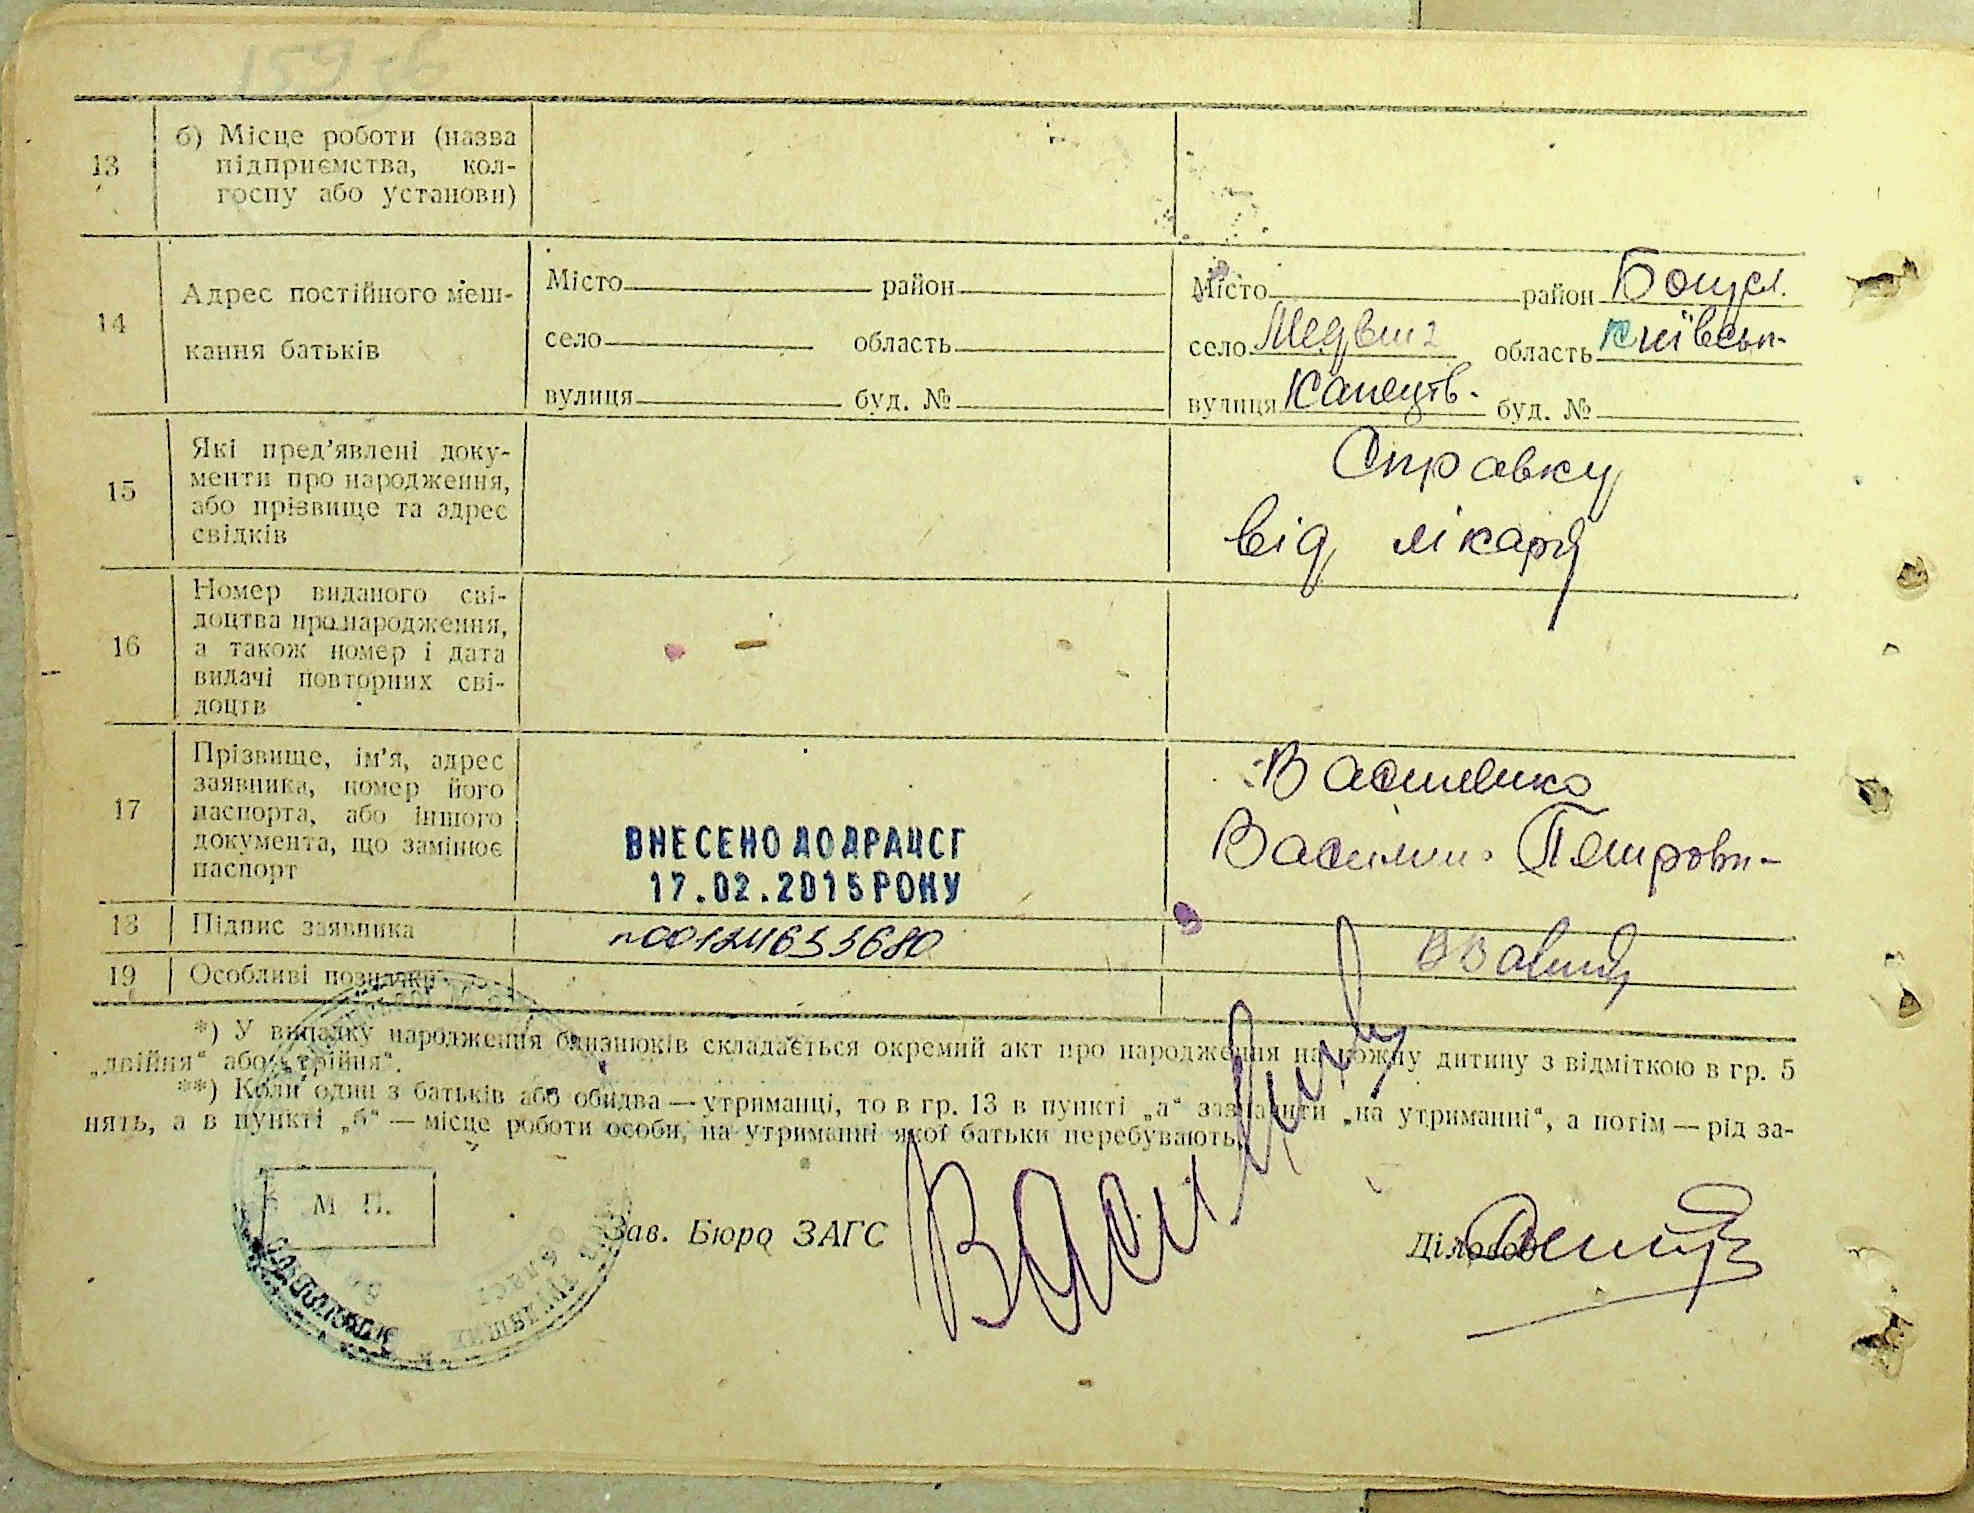 13
б) Місце роботи (назва
підприємства, кол-
госпу або установи)
14
Адрес постійного меш-
кання батьків
Місто район
село область
вулиця буд. №
Місто район Богусл.
село Медвин область Київськ-
вулиця буд. №
15
Які пред'явлені доку-
менти про народження,
або прізвище та адрес
свідків
Справку
від лікаря
16
Номер виданого сві-
доцтва про народження,
а також номер і дата
видачі повторних сві-
доцтв
17
Прізвище, ім'я, адрес
заявника, номер його
паспорта, або іншого
документа, що замінює
паспорт
ВНЕСЕНО ДО ДРАЦСГ
17.02.2015 РОКУ
Василенко
Василина Петровн-
18
Підпис заявника
00124633680
19
Особливі позначки
*) У випадку народження близнюків складається окремий акт про народження на кожну дитину з відміткою в гр. 5
„двійня“ або „трійня“.
**) Коли один з батьків або обидва — утриманці, то в гр. 13 в пункті „а“ зазначити „на утриманні“, а потім — рід за-
нять, а в пункті „б“ — місце роботи особи, на утриманні якої батьки перебувають.
М П.
Зав. Бюро ЗАГС
Діловод